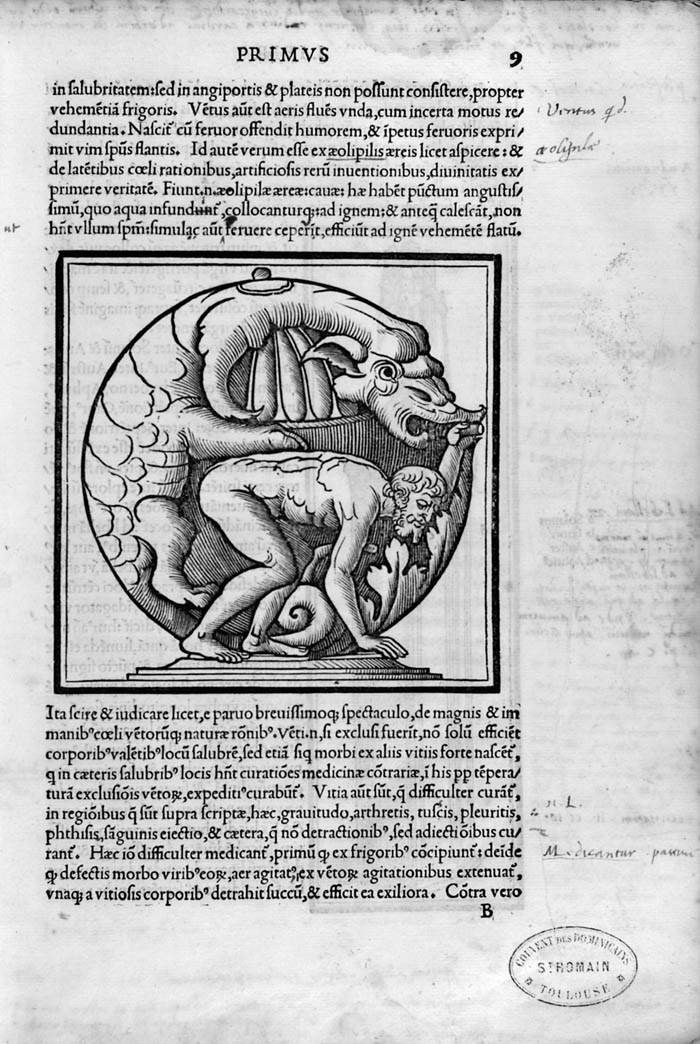 PRIMVS 9
in salubritatem: sed in angiportis & plateis non possunt consistere, propter
vehemẽtiã frigoris. Vẽtus aũt est aeris fluẽs vnda, cum incerta motus re/
dundantia. Nascit᷑ cũ feruor offendit humorem, & ĩpetus feruoris expri/
mit vim spũs flantis. Id autẽ verum esse ex æolipilis æreis licet aspicere: &
de latẽtibus cœli rationibus, artificiosis rerũ inuentionibus, diuinitatis ex/
primere veritatẽ. Fiunt.n. æolipilæ æreæ: cauæ: hæ habẽt pũctum angustis/
simũ, quo aqua infundunt᷑, collocanturq́; ad ignem: & anteq̃ calescãt, non
hñt vllum spm̃: simulac aũt feruere ceperĩt, efficiũt ad ignẽ vehemẽtẽ flatũ.
Ventus qd.
æolipilæ
ut
Ita scire & iudicare licet, e paruo breuissimoq́; spectaculo, de magnis & im
manibꝰ cœli vẽtorũq́; naturæ rõnibꝰ. Vẽti.n, si exclusi fuerĩt, nõ solũ efficiẽt
corporibꝰ valẽtibꝰ locũ salubrẽ, sed etiã siq̃ morbi ex aliis vitiis forte nascẽt᷑,
q̃ in cæteris salubribꝰ locis hñt curatiões medicinæ cõtrariæ, ĩ his pp tẽpera/
turã exclusiõis vẽtoꝝ, expeditiꝰ curabũt᷑. Vitia aũt sũt, q̃ difficulter curãt᷑,
in regiõibus q̃ sũt supra scriptæ, hæc, grauitudo, arthretis, tuscis, pleuritis,
phthisis, sãguinis eiectio, & cætera, q̃ nõ detractionibꝰ, sed adiectiõibus cu/
rant᷑. Hæc iõ difficulter medicant᷑, primũ q̃ ex frigoribꝰ cõcipiunt᷑: deĩde
q̃ defectis morbo viribꝰ eoꝝ, aer agitatꝰ, ex vẽtoꝝ agitationibus extenuat᷑,
vnaq́; a vitiosis corporibꝰ detrahit succũ, & efficit ea exiliora. Cõtra vero
B
COUVENT DES DOMINICAINS
ST ROMAIN
TOULOUSE